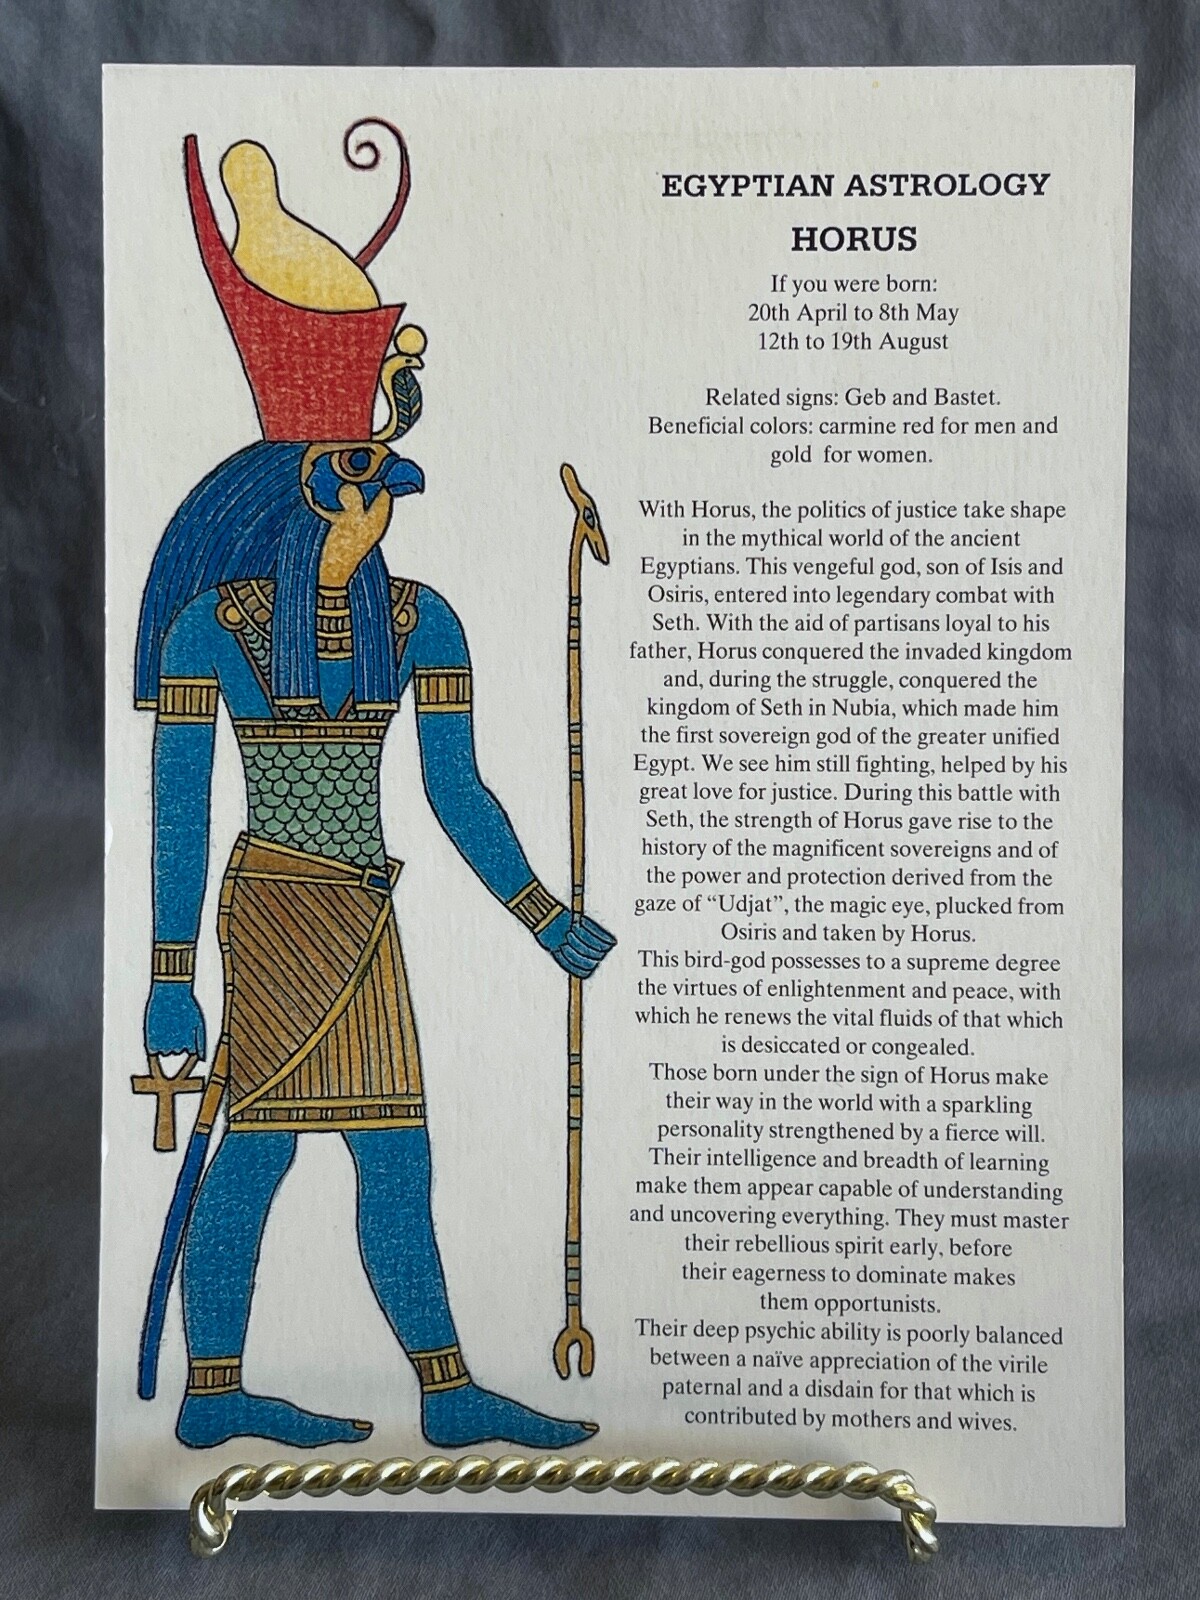 EGYPTIAN ASTROLOGY
HORUS
If you were born:
20th April to 8th May
12th to 19th August
Related signs: Geb and Bastet.
Beneficial colors: carmine red for men and
gold for women.
With Horus, the politics of justice take shape
in the mythical world of the ancient
Egyptians. This vengeful god, son of Isis and
Osiris, entered into legendary combat with
Seth. With the aid of partisans loyal to his
father, Horus conquered the invaded kingdom
and, during the struggle, conquered the
kingdom of Seth in Nubia, which made him
the first sovereign god of the greater unified
Egypt. We see him still fighting, helped by his
great love for justice. During this battle with
Seth, the strength of Horus gave rise to the
history of the magnificent sovereigns and of
the power and protection derived from the
gaze of “Udjat”, the magic eye, plucked from
Osiris and taken by Horus.
This bird-god possesses to a supreme degree
the virtues of enlightenment and peace, with
which he renews the vital fluids of that which
is desiccated or congealed.
Those born under the sign of Horus make
their way in the world with a sparkling
personality strengthened by a fierce will.
Their intelligence and breadth of learning
make them appear capable of understanding
and uncovering everything. They must master
their rebellious spirit early, before
their eagerness to dominate makes
them opportunists.
Their deep psychic ability is poorly balanced
between a naïve appreciation of the virile
paternal and a disdain for that which is
contributed by mothers and wives.